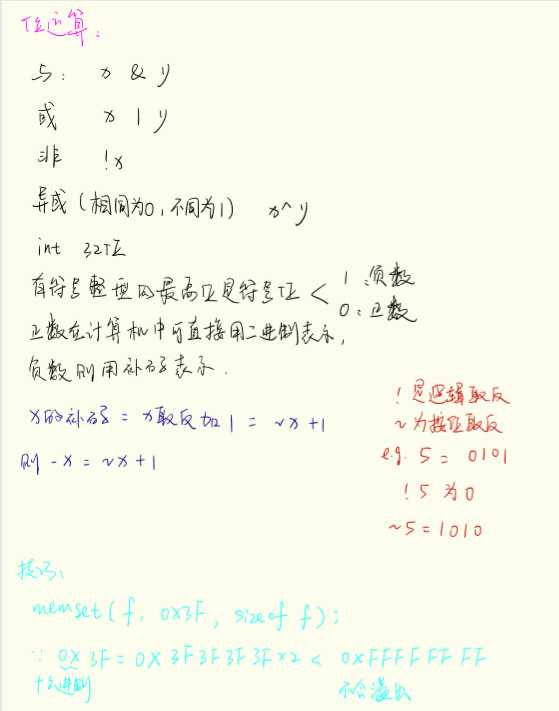 位运算：
与： x & y
或 x | y
非 !x
异或（相同为0，不同为1） x^y
int 32位
有符号整型的最高位是符号位 < 1：负数
0：正数
正数在计算机中可直接用二进制表示，
负数则用补码表示．
x的补码 = x取反加1 = ~x+1
则 -x = ~x+1
! 是逻辑取反
~ 为按位取反
e.g. 5 = 0101
!5 为0
~5 = 1010
技巧：
memset(f, 0x3F, sizeof f);
∵ 0x 3F = 0X 3F 3F 3F 3F ×2 < 0XFFFF FF FF
十六进制 不会溢出